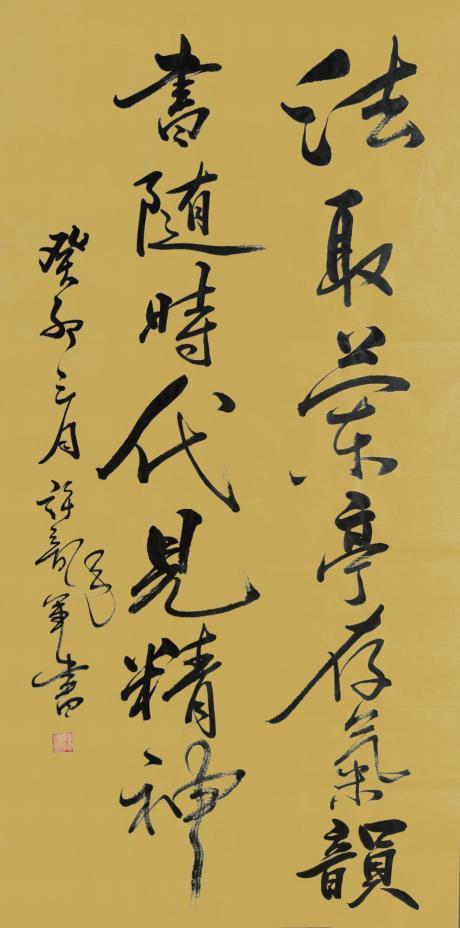 法取蘭亭存氣韻
書隨時代見精神
癸卯三月許龍軍書